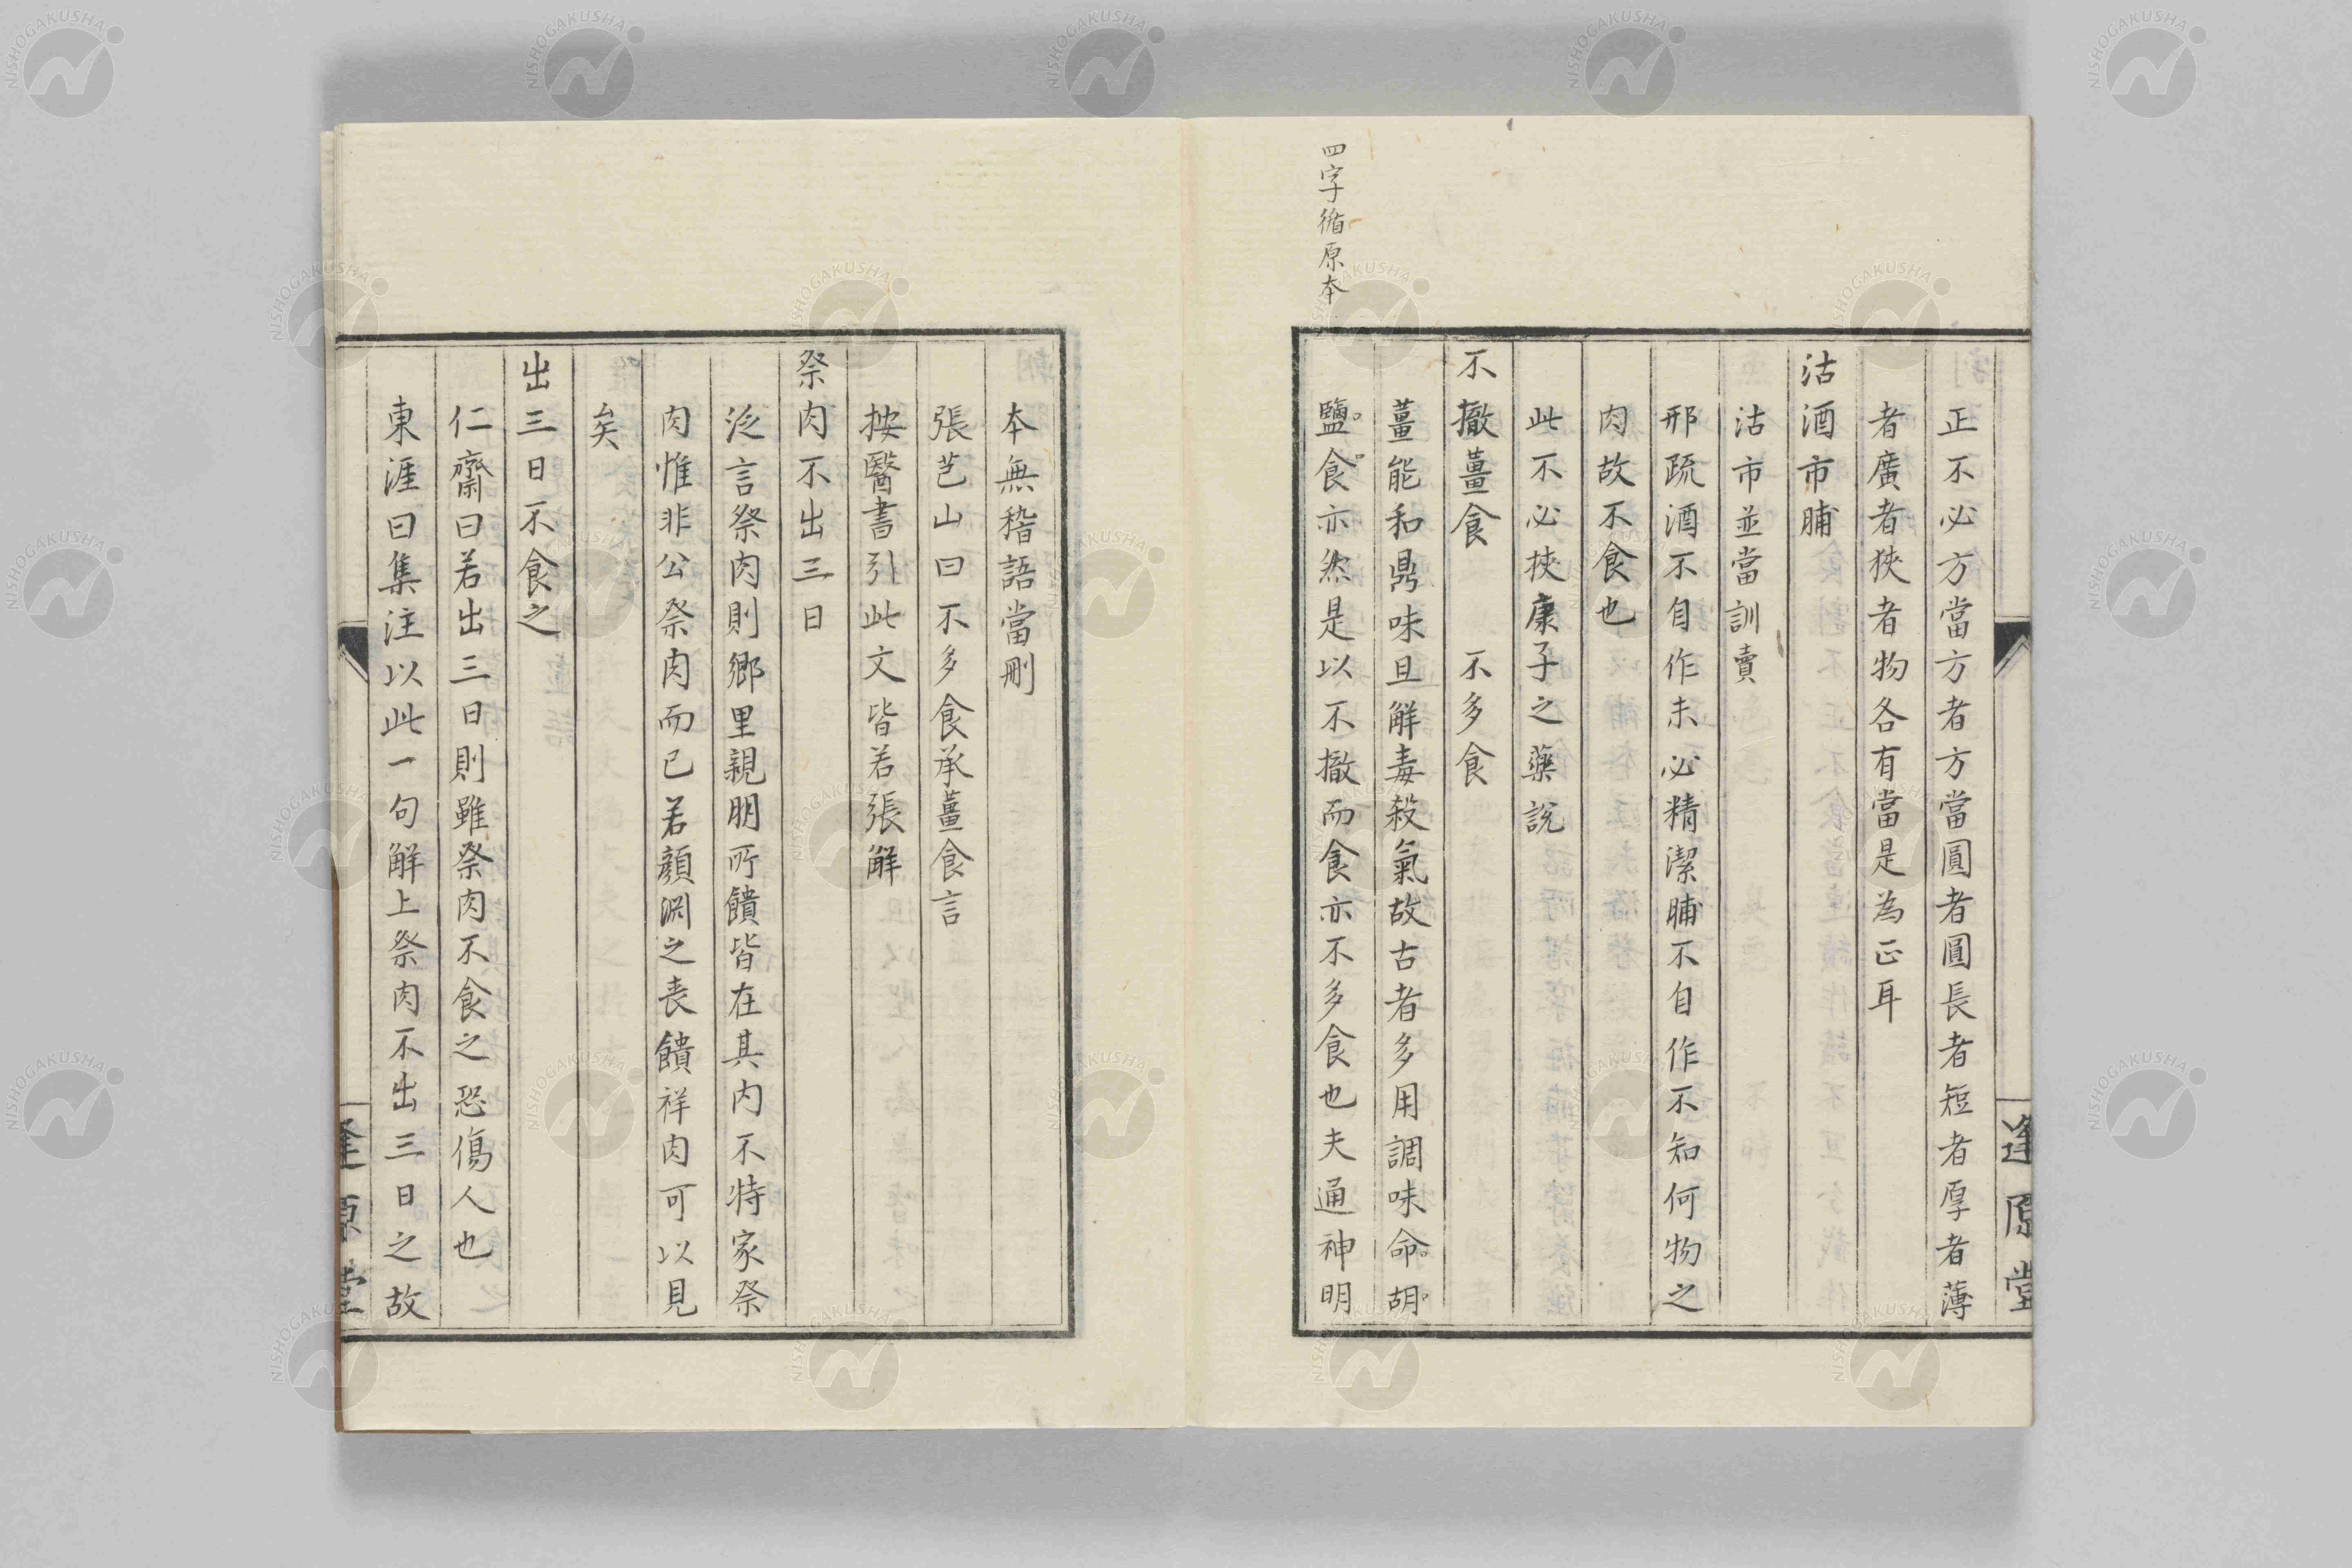 四字循原本
正不必方當方者方當圓者圓長者短者厚者薄
者廣者狹者物各有當是為正耳
沽酒市脯
沽市並當訓賣
邢疏酒不自作未必精潔脯不自作不知何物之
肉故不食也
此不必挾康子之藥說
不撤薑食　不多食
薑能和鼎味且解毒殺氣故古者多用調味命胡
鹽食亦然是以不撤而食亦不多食也夫通神明
逢原堂
本無稽語當刪
張芑山曰不多食承薑食言
按醫書引此文皆若張解
祭肉不出三日
泛言祭肉則鄉里親朋所饋皆在其内不特家祭
肉惟非公祭肉而已若顏淵之喪饋祥肉可以見
矣
出三日不食之
仁齋曰若出三日則雖祭肉不食之恐傷人也
東涯曰集注以此一句解上祭肉不出三日之故
逢原堂
NISHOGAKUSHA